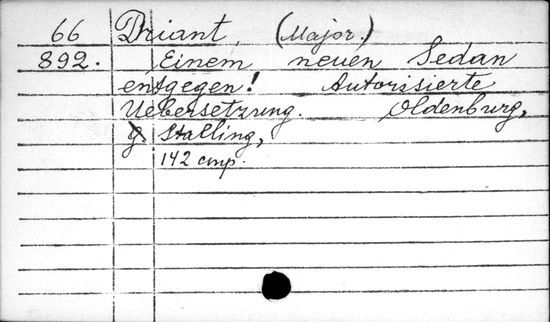 66 Driant, (Major.)
892. Einem neuen Sedan
entgegen! Autorisierte
Uebersetzung. Oldenburg,
G Stalling,
142 стр.